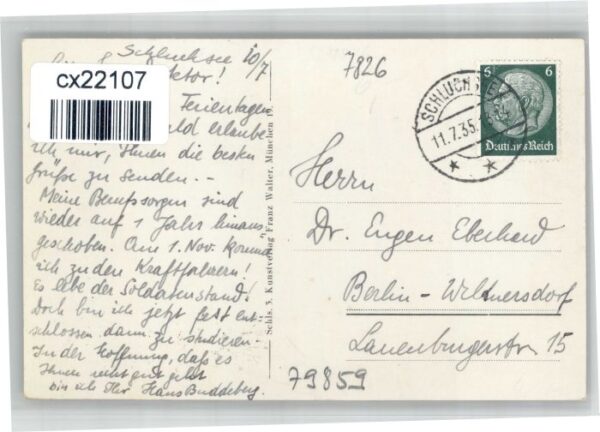 Schluchsee 10/7
cx22107
Ferientagen
erlaube
ich mir, Ihnen die besten
Grüße zu senden. -
Meine Berufssorgen sind
wieder auf 1 Jahr hinaus
geschoben. Am 1. Nov. komme
ich zu den Kraftfahrern!
Es lebe der Soldatenstand!
Doch bin ich jetzt fest ent-
schlossen dann zu studieren.
In der Hoffnung, daß es
Ihnen recht gut geht
bin ich Ihr Hans Buddeberg.
Schls. 3. Kunstverlag Franz Walter, München 19.
7826
SCHLUCHSEE
11.7.35.
6 6
Deutsches Reich
Herrn
Dr. Eugen Eberhard
Berlin-Wilmersdorf
Lauenburgerstr. 15
79859